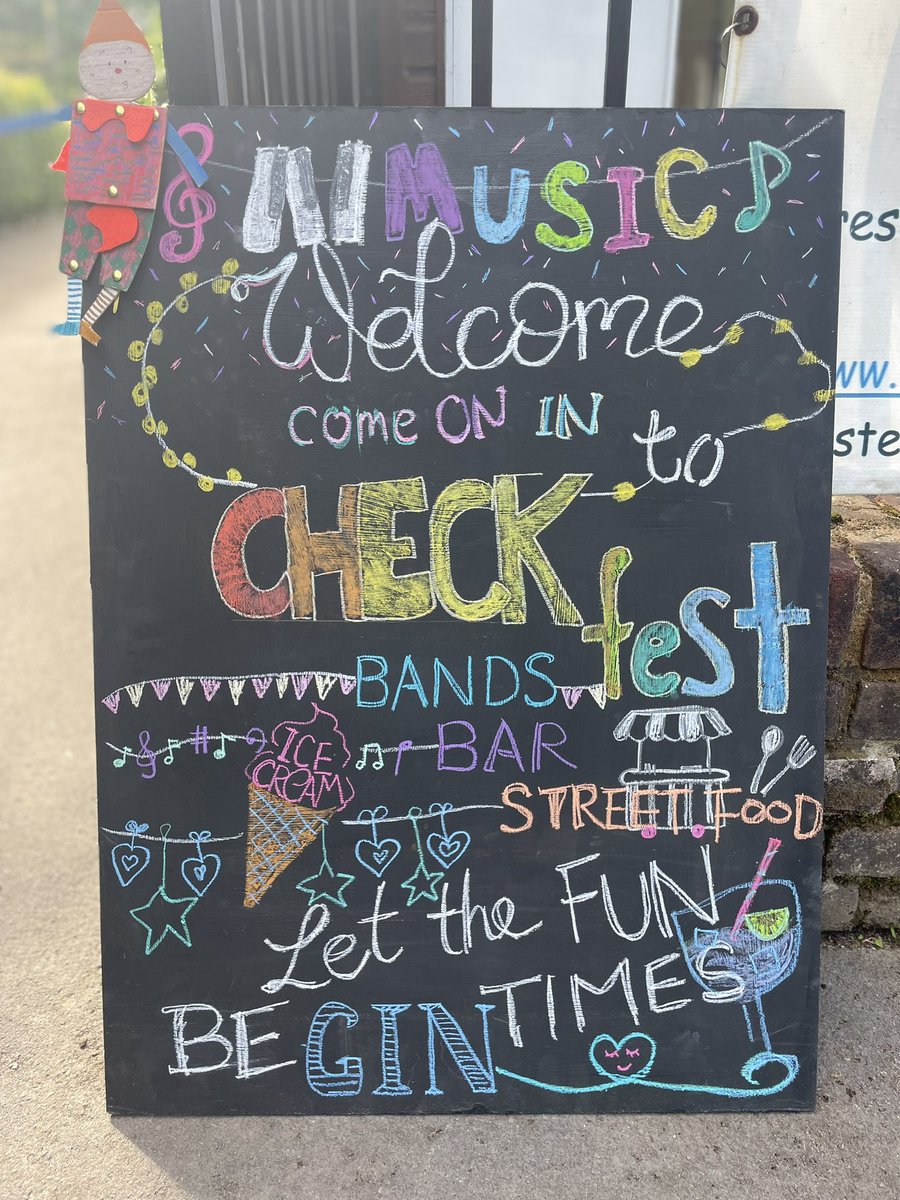 MUSIC
Welcome
COME ON IN
to
CHECK
fest
BANDS
BAR
ICE
CREAM
STREET FOOD
Let the FUN
TIMES
BEGIN
res
ww.
ste